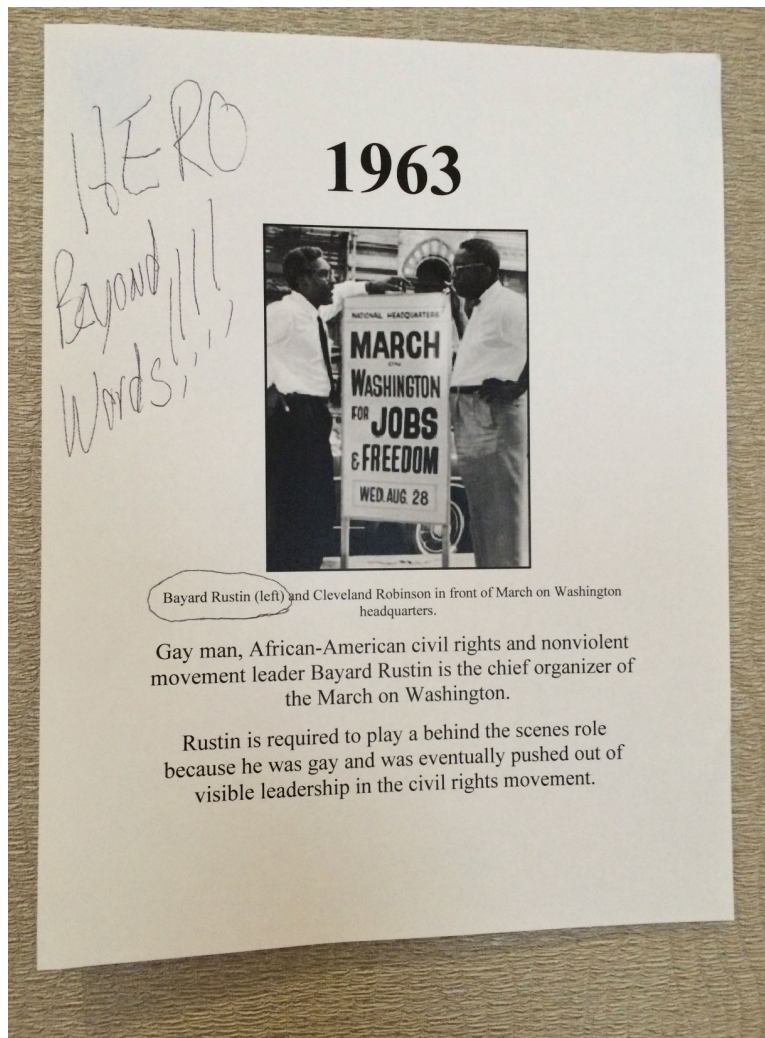 HERO
Beyond
Words,!!!!
1963
NATIONAL HEADQUARTERS
MARCH
ON
WASHINGTON
FOR JOBS
& FREEDOM
WED. AUG. 28
Bayard Rustin (left) and Cleveland Robinson in front of March on Washington
headquarters.
Gay man, African-American civil rights and nonviolent
movement leader Bayard Rustin is the chief organizer of
the March on Washington.
Rustin is required to play a behind the scenes role
because he was gay and was eventually pushed out of
visible leadership in the civil rights movement.